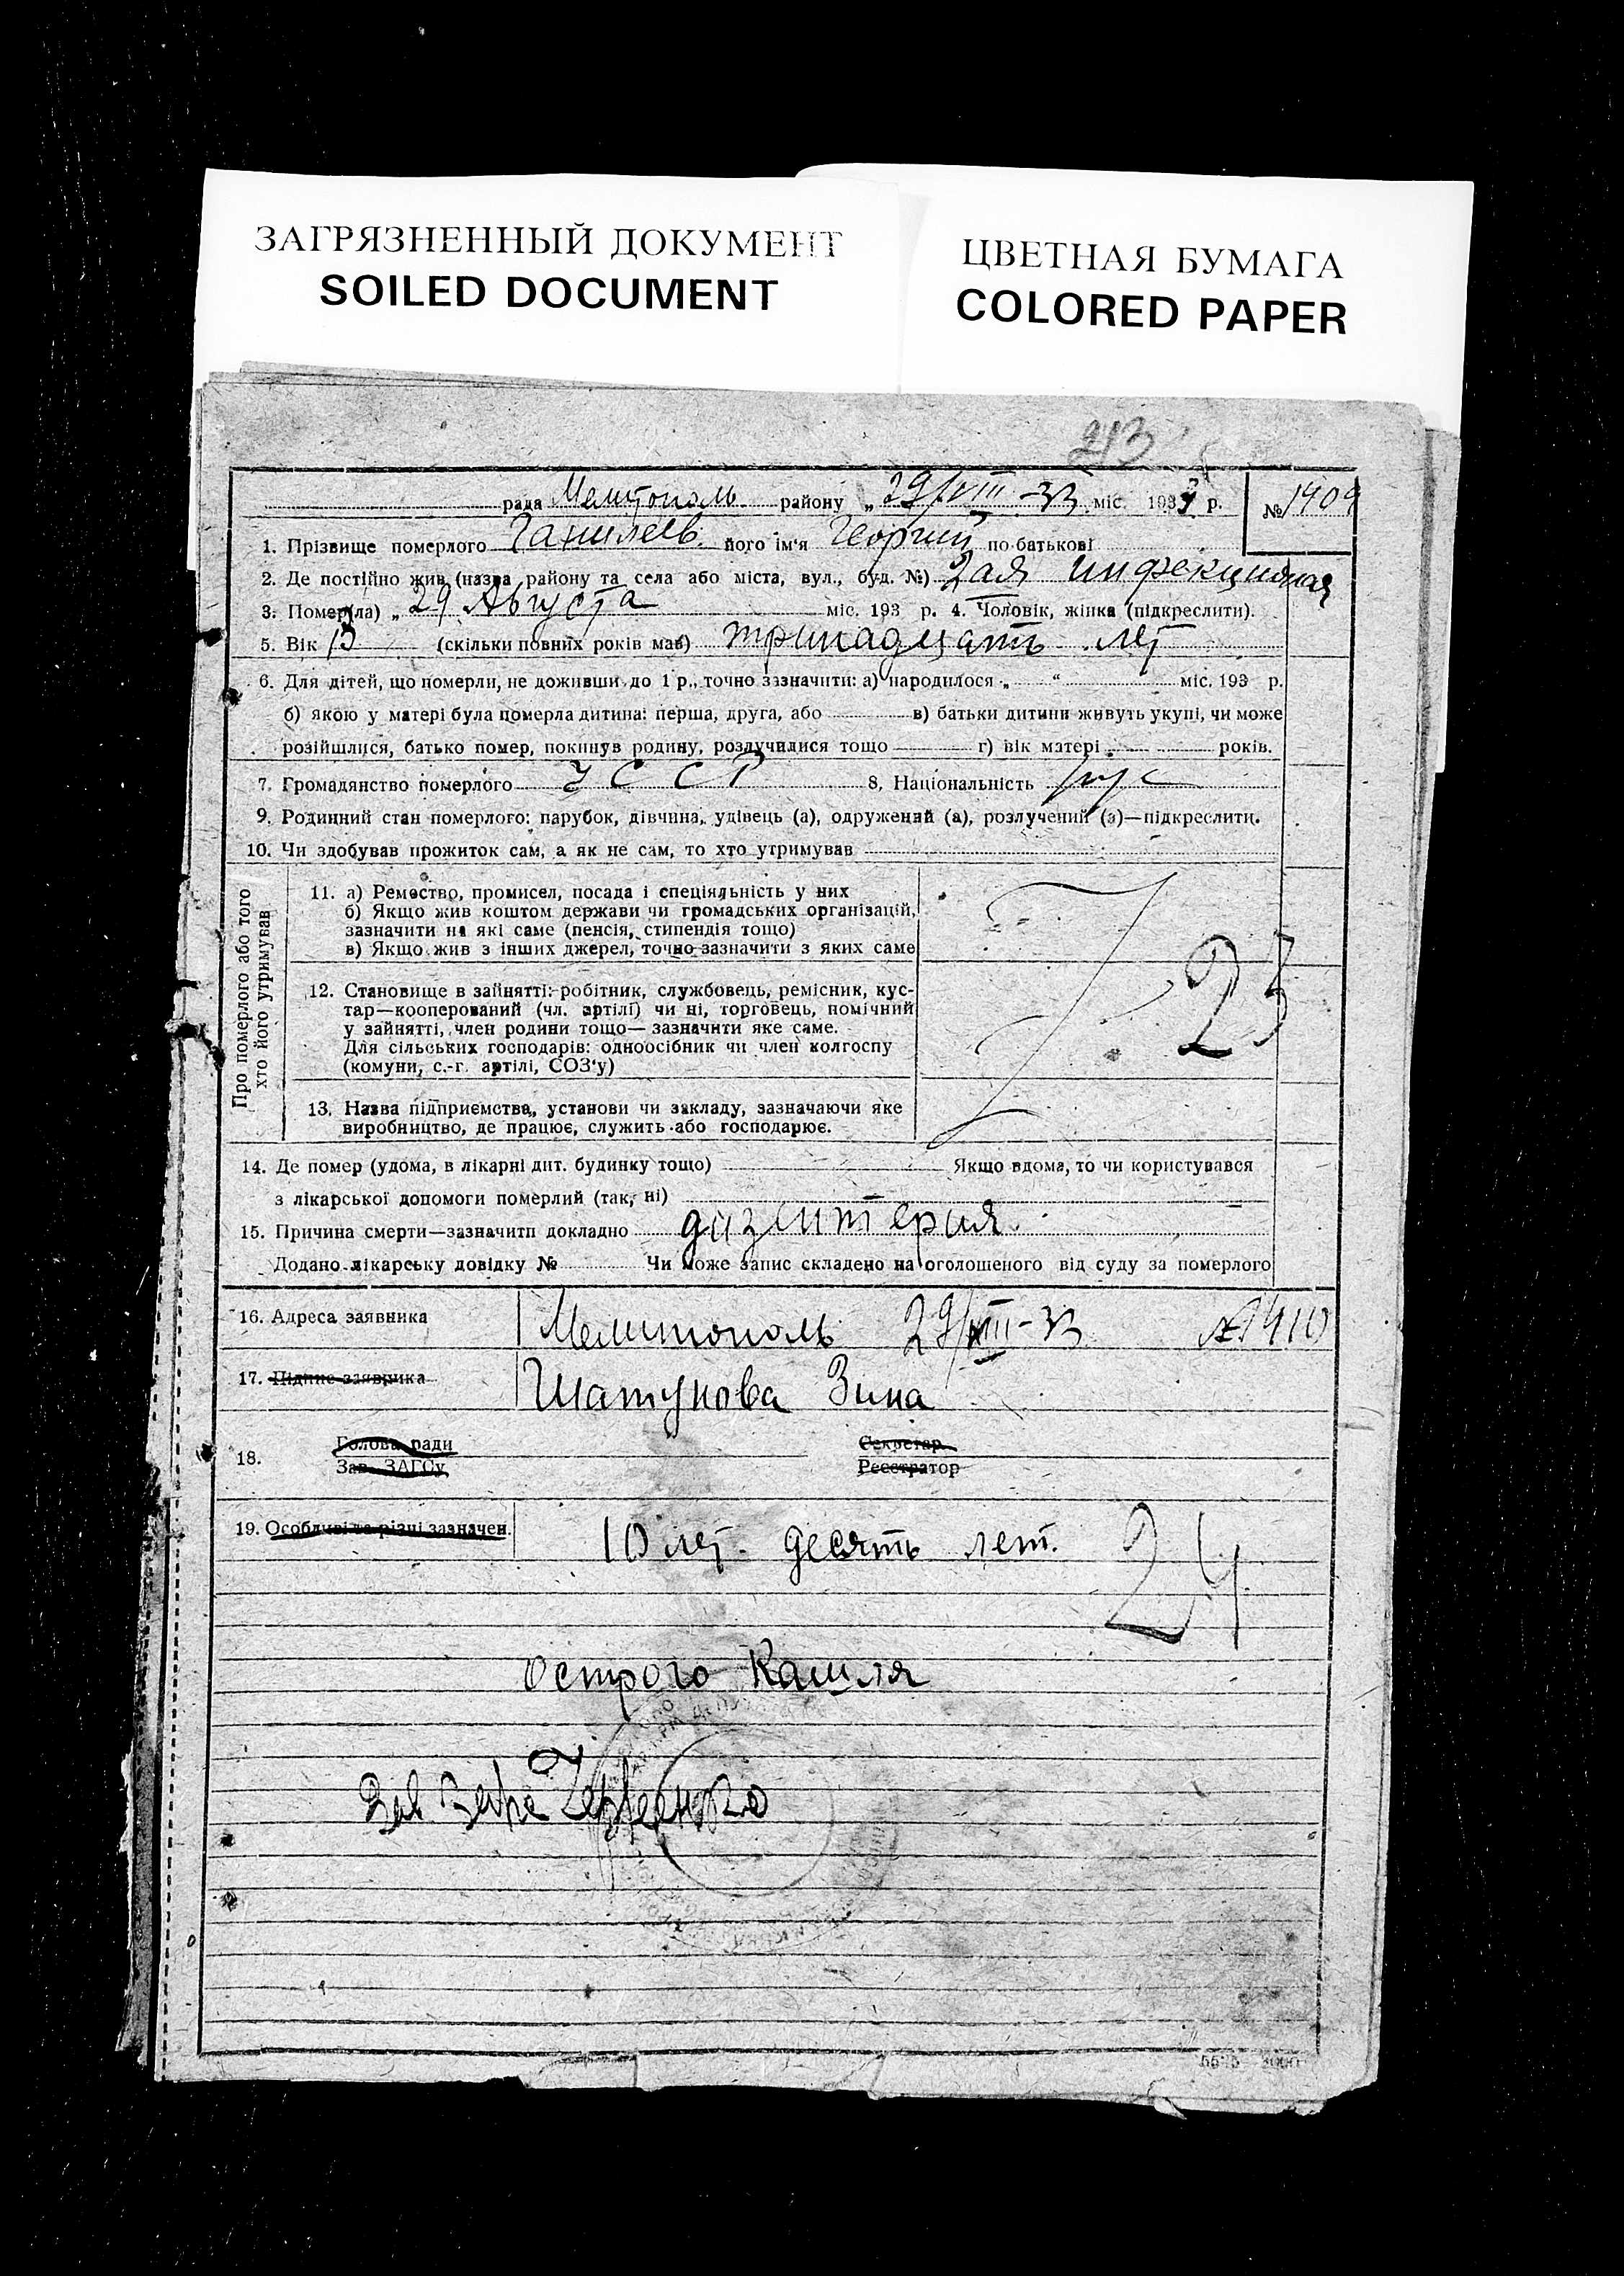 ЗАГРЯЗНЕННЫЙ ДОКУМЕНТ
SOILED DOCUMENT
ЦВЕТНАЯ БУМАГА
COLORED PAPER
213
рада Мелитополь району „29/VIII-33 міс. 1933 р. № 1409
1. Прізвище померлого його ім'я Георгий по батькові
2. Де постійно жив (назва району та села або міста, вул., буд. №) 2ая инфекционая
3. Помер(ла) „29 Августа міс. 193 р. 4. Чоловік, жінка (підкреслити).
5. Вік 13 (скільки повних років мав) тринадцать лет
6. Для дітей, що померли, не доживши до 1 р., точно зазначити: а) народилося „ “ міс. 193 р.
б) якою у матері була померла дитина: перша, друга, або в) батьки дитини живуть укупі, чи може
розійшлися, батько помер, покинув родину, розлучилися тощо г) вік матері років.
7. Громадянство померлого УССР 8. Національність рус
9. Родинний стан померлого: парубок, дівчина, удівець (а), одружений (а), розлучений (а)—підкреслити.
10. Чи здобував прожиток сам, а як не сам, то хто утримував
Про померлого або того
хто його утримував
11. а) Ремество, промисел, посада і спеціяльність у них
б) Якщо жив коштом держави чи громадських організацій,
зазначити на які саме (пенсія, стипендія тощо)
в) Якщо жив з інших джерел, точно зазначити з яких саме
23
12. Становище в зайнятті: робітник, службовець, ремісник, кус-
тар—кооперований (чл. артілі) чи ні, торговець, помічний
у зайнятті, член родини тощо— зазначити яке саме.
Для сільських господарів: одноосібник чи член колгоспу
(комуни, с.-г. артілі, СОЗ'у)
13. Назва підприємства, установи чи закладу, зазначаючи яке
виробництво, де працює, служить або господарює.
14. Де помер (удома, в лікарні дит. будинку тощо) Якщо вдома, то чи користувався
з лікарської допомоги померлий (так, ні)
15. Причина смерти—зазначити докладно дизентерия.
Додано лікарську довідку № Чи може запис складено на оголошеного від суду за померлого
16. Адреса заявника Мелитополь 29/VIII-33 №1410
17. Підпис заявника Шатунова Зина
18. Голова ради Секретар
Зав. ЗАГСу Реєстратор
19. Особливі та різні зазначен. 10 лет. десять лет. 24
Острого Кашля